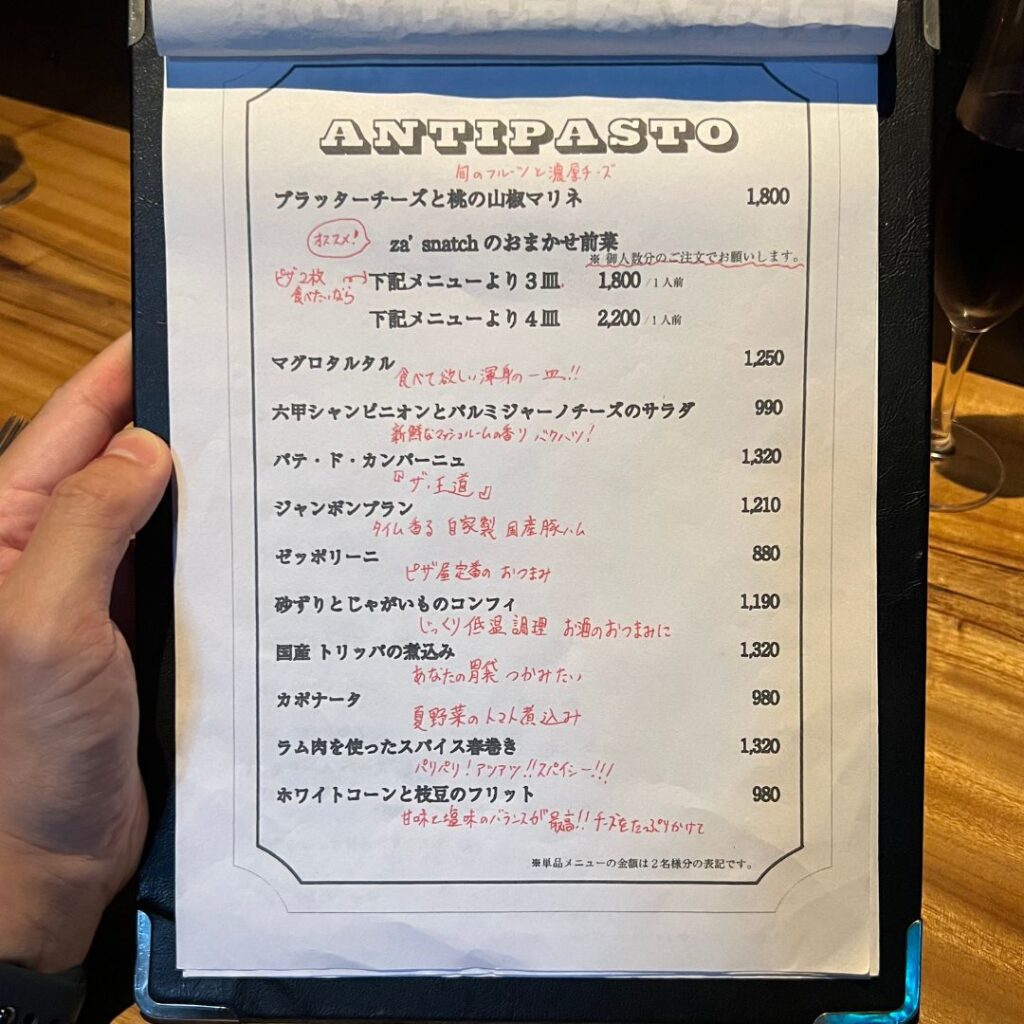 ANTIPASTO
旬のフルーツと濃厚チーズ
ブラッターチーズと桃の山椒マリネ 1,800
オススメ!
za' snatch のおまかせ前菜
※ 御人数分のご注文でお願いします。
ピザ2枚食べたいなら
下記メニューより3皿 1,800 /1人前
下記メニューより4皿 2,200 /1人前
マグロタルタル 1,250
食べて欲しい渾身の一皿!!
六甲シャンピニオンとパルミジャーノチーズのサラダ 990
新鮮なマッシュルームの香りバクハツ!
パテ・ド・カンパーニュ 1,320
『ザ・王道』
ジャンボンブラン 1,210
タイム香る 自家製 国産豚ハム
ゼッポリーニ 880
ピザ屋定番の おつまみ
砂ずりとじゃがいものコンフィ 1,190
じっくり低温調理 お酒のおつまみに
国産 トリッパの煮込み 1,320
あなたの胃袋 つかみたい
カポナータ 980
夏野菜のトマト煮込み
ラム肉を使ったスパイス春巻き 1,320
パリパリ!アツアツ!!スパイシー!!!
ホワイトコーンと枝豆のフリット 980
甘味と塩味のバランスが最高!!チーズをたっぷりかけて
※単品メニューの金額は2名様分の表記です。